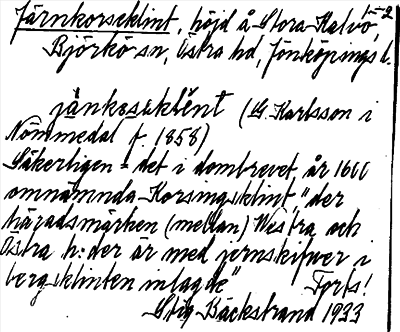 Järnkorseklint, höjd å Stora Kalvö, 1-2
Björkö sn, Östra hd, Jönköpings l.
jànkoseklĕ́nt (G. Karlsson i
Nömmedal f. 1858)
Säkerligen = det i dombrevet år 1600
omnämnda Korsingsklint, "der
häradsmärken (mellan) Westra och
Östra h:der är med jernskifver i
bergsklinten inlagde" Forts!
Stig Bäckstrand 1933